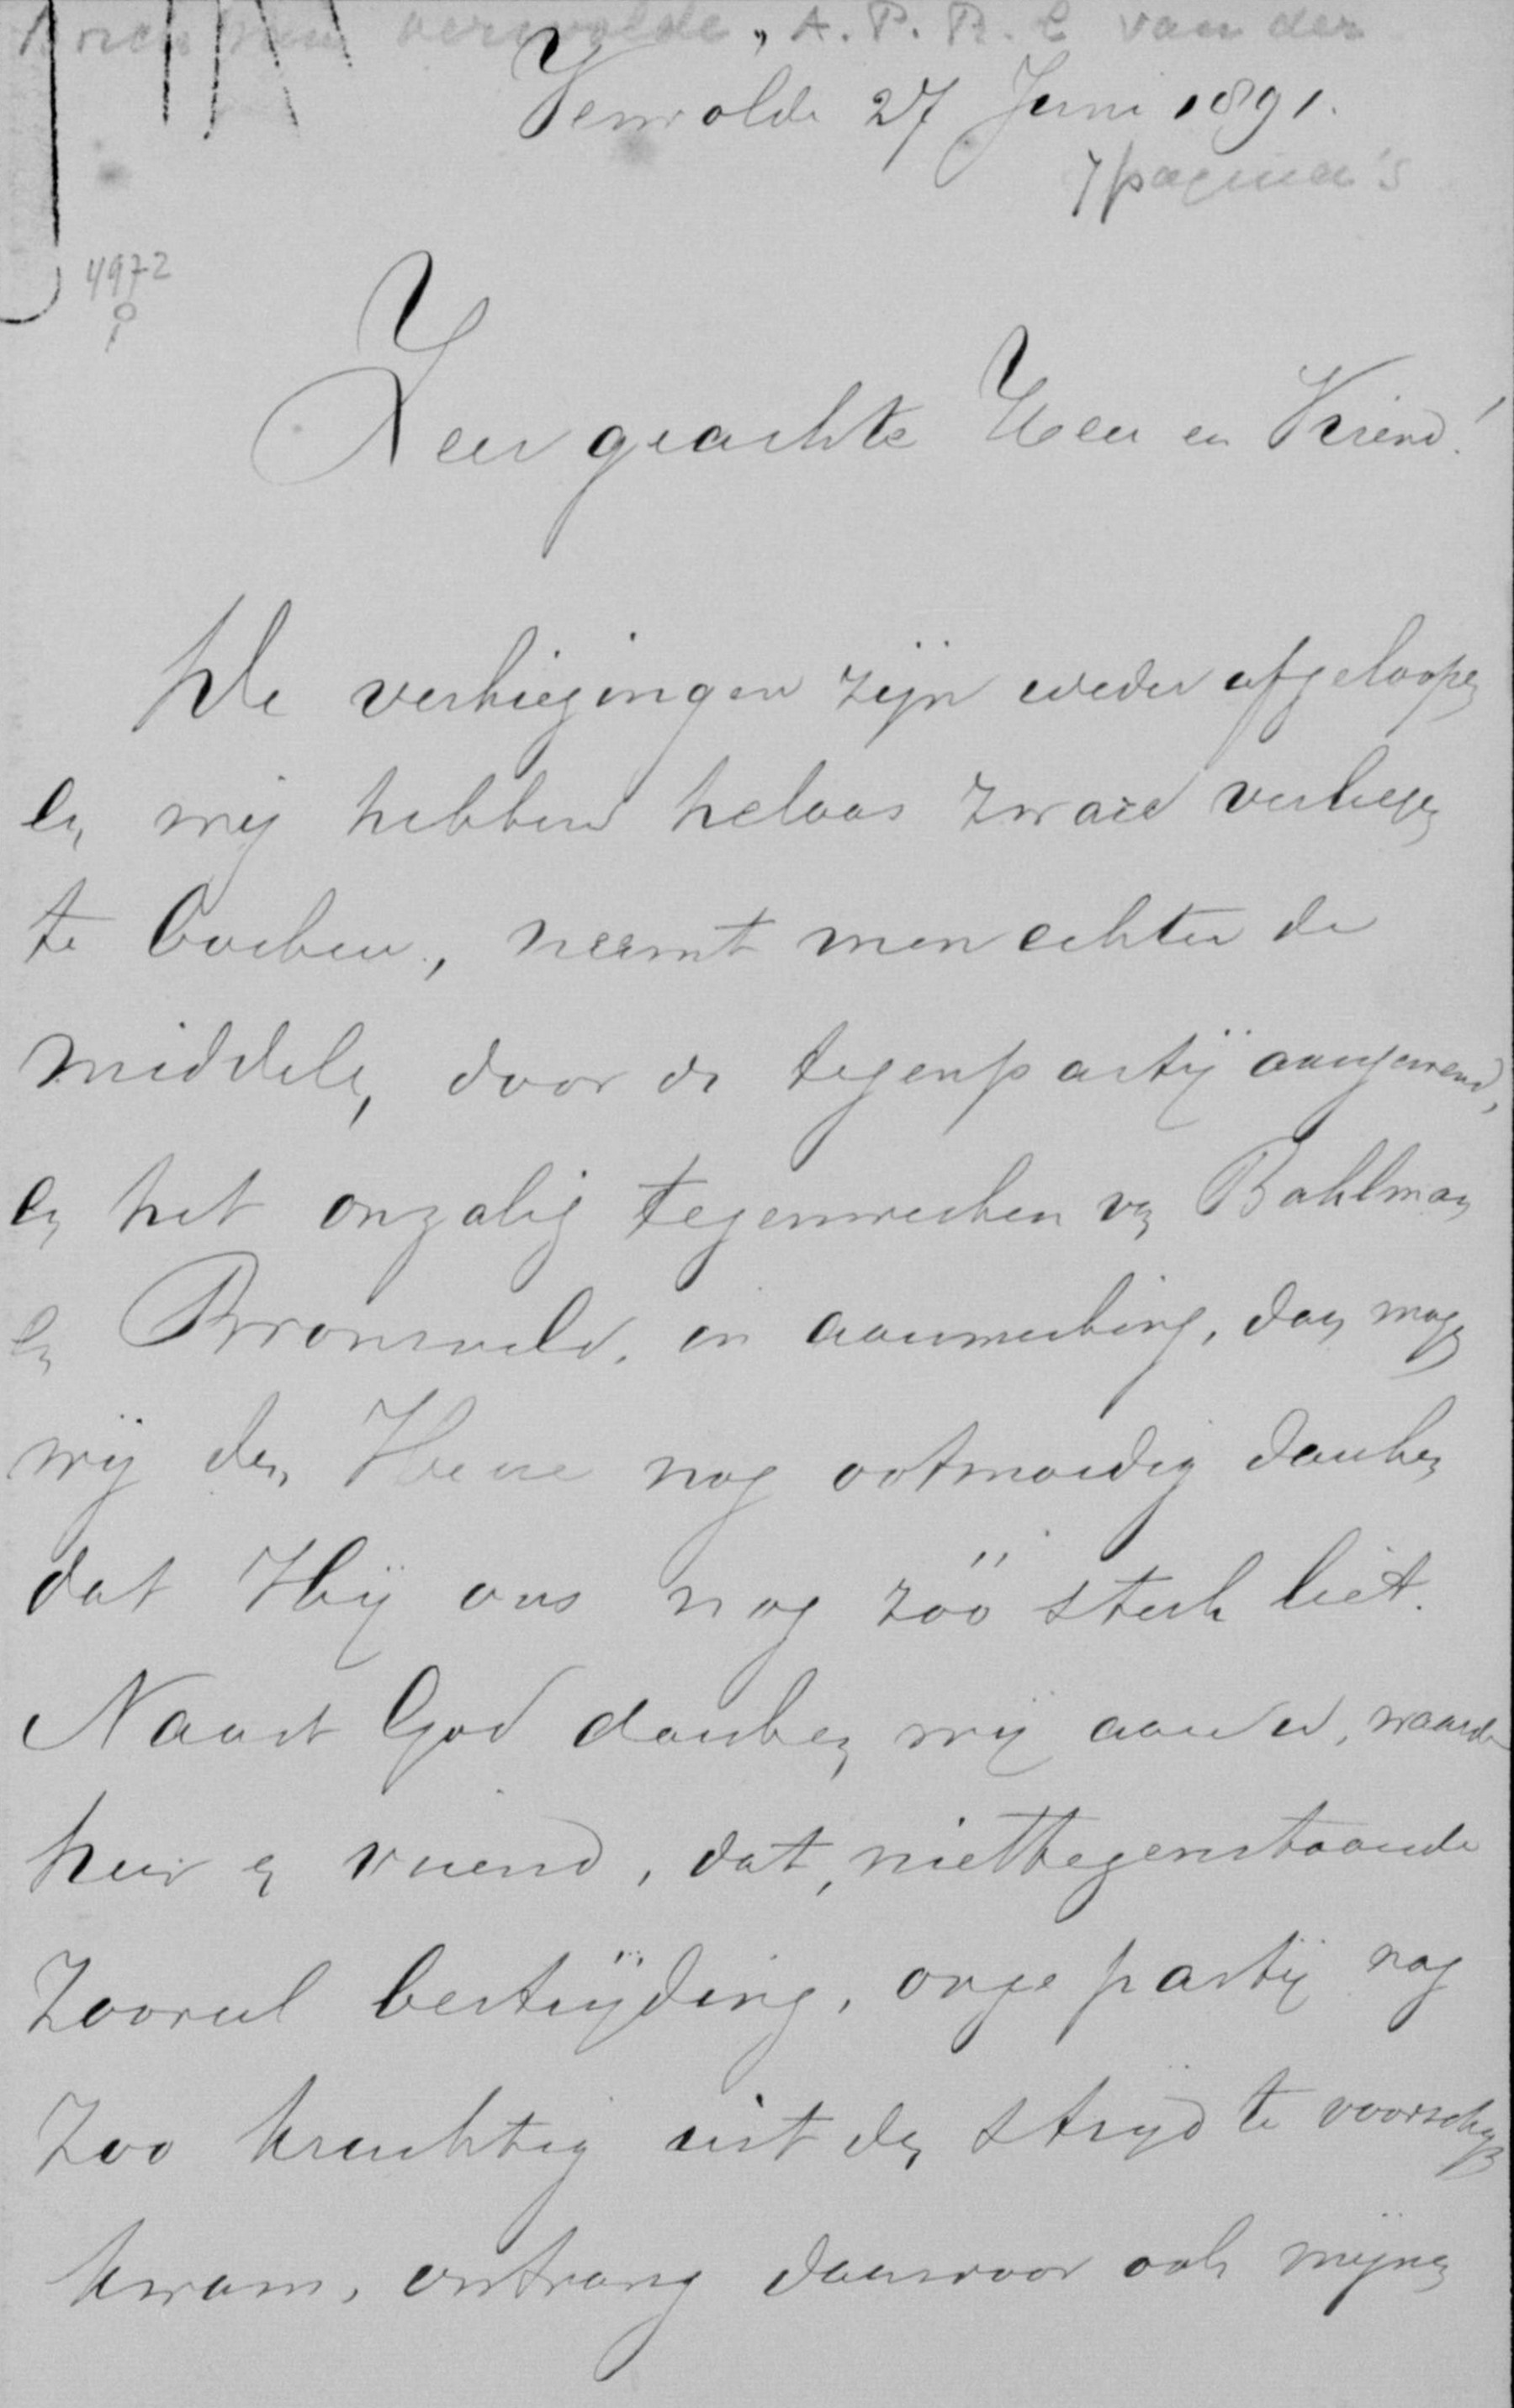 verwolde, A. P. R. C van der
Verwolde 27 Juni 1891.
7 pagina's
4972
Zeer geachte Heer en Vriend!
De verkiezingen zijn weder afgeloopen
en wij hebben helaas zware verliezen
te boeken, neemt men echter de
middelen, door de tegenpartij aangewend,
en het onzalig tegenwerken van Bahlman
en Bronsveld, in aanmerking, dan mogen
wij den Heere nog ootmoedig danken
dat Hij ons nog zóó sterk liet.
Naast God danken wij aan U, waarde
heer en vriend, dat, niettegenstaande
zooveel bestrijding, onze partij nog
zoo krachtig uit den strijd te voorschijn
kwam, ontvang daarvoor ook mijnen